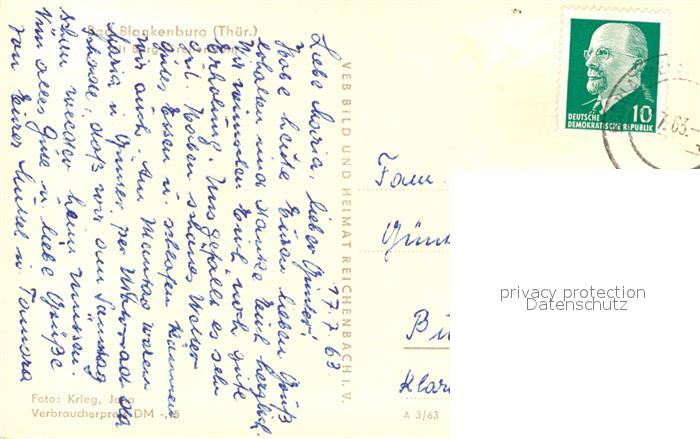 Bad Blankenburg (Thür.)
mit Burg Greifenstein
17.7.63
Liebe Maria, lieber Günter!
Habe heute Euren lieben Gruß
erhalten und danke Euch herzlich.
Wir wünschen Euch noch gute
Erholung. Uns gefällt es sehr
gut. Haben schönes Wetter
gutes Essen u. schlafen können
wir auch. Am Montag waren
Maria u. Günter per Motorrad da
schade, daß wir am Samstag
schon wieder heim müssen.
Nun alles Gute u. liebe Grüße
von Eurer u. Tamara
VEB BILD UND HEIMAT REICHENBACH I. V.
Foto: Krieg, Jena
Verbraucherpreis DM -,15
A 3/63
10
DEUTSCHE
DEMOKRATISCHE REPUBLIK
7.63.
Fam.
Günt
Bu
Klar
privacy protection
Datenschutz